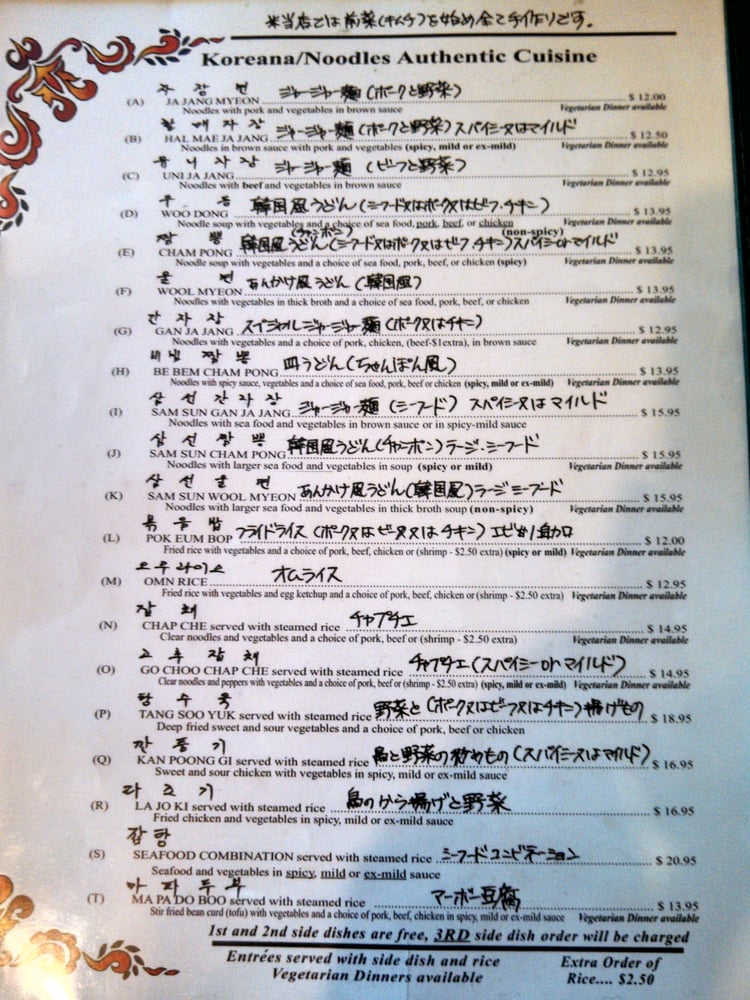 ※当店では前菜(キムチ)を始め全て手作りです。
Koreana/Noodles Authentic Cuisine
자 장 면 ジャージャー麺(ポークと野菜)
(A) JA JANG MYEON $ 12.00
Noodles with pork and vegetables in brown sauce Vegetarian Dinner available
할 매 자 장 ジャージャー麺(ポークと野菜)スパイシー又はマイルド
(B) HAL MAE JA JANG $ 12.50
Noodles in brown sauce with pork and vegetables (spicy, mild or ex-mild) Vegetarian Dinner available
유 니 자 장 ジャージャー麺(ビーフと野菜)
(C) UNI JA JANG $ 12.95
Noodles with beef and vegetables in brown sauce Vegetarian Dinner available
우 동 韓国風うどん(シーフード又はポーク又はビーフ.チキン)
(D) WOO DONG $ 13.95
Noodle soup with vegetables and a choice of sea food, pork, beef, or chicken (non-spicy) Vegetarian Dinner available
짬 뽕 (チャンポン) 韓国風うどん(シーフード又はポーク又はビーフ.チキン)スパイシーorマイルド
(E) CHAM PONG $ 13.95
Noodle soup with vegetables and a choice of sea food, pork, beef, or chicken (spicy) Vegetarian Dinner available
울 면 あんかけ風うどん(韓国風)
(F) WOOL MYEON $ 13.95
Noodles with vegetables in thick broth and a choice of sea food, pork, beef, or chicken Vegetarian Dinner available
간 자 장 スペシャルジャージャー麺(ポーク又はチキン)
(G) GAN JA JANG $ 12.95
Noodles with vegetables and a choice of pork, chicken, (beef-$1extra), in brown sauce Vegetarian Dinner available
비 빔 짬 뽕 皿うどん(ちゃんぽん風)
(H) BE BEM CHAM PONG $ 13.95
Noodles with spicy sauce, vegetables and a choice of sea food, pork, beef or chicken (spicy, mild or ex-mild) Vegetarian Dinner available
삼 선 간 자 장 ジャージャー麺(シーフード)スペイシー又はマイルド
(I) SAM SUN GAN JA JANG $ 15.95
Noodles with sea food and vegetables in brown sauce or in spicy-mild sauce
삼 선 짬 뽕 韓国風うどん(チャンポン)ラージ・シーフード
(J) SAM SUN CHAM PONG $ 15.95
Noodles with larger sea food and vegetables in soup (spicy or mild) Vegetarian Dinner available
삼 선 울 면 あんかけ風うどん(韓国風)ラージシーフード
(K) SAM SUN WOOL MYEON $ 15.95
Noodles with larger sea food and vegetables in thick broth soup (non-spicy) Vegetarian Dinner available
볶 음 밥 フライドライス(ポーク又はビーフ又はチキン)エビは追加
(L) POK EUM BOP $ 12.00
Fried rice with vegetables and a choice of pork, beef, chicken or (shrimp - $2.50 extra) (spicy or mild) Vegetarian Dinner available
오 무 라 이 스 オムライス
(M) OMN RICE $ 12.95
Fried rice with vegetables and egg ketchup and a choice of pork, beef, chicken or (shrimp - $2.50 extra) Vegetarian Dinner available
잡 채 チャプチェ
(N) CHAP CHE served with steamed rice $ 14.95
Clear noodles and vegetables and a choice of pork, beef or (shrimp - $2.50 extra) Vegetarian Dinner available
고 추 잡 채 チャプチェ(スパイシーorマイルド)
(O) GO CHOO CHAP CHE served with steamed rice $ 14.95
Clear noodles and peppers with vegetables and a choice of pork, beef or (shrimp - $2.50 extra) (spicy, mild or ex-mild) Vegetarian Dinner available
탕 수 육 野菜と(ポーク又はビーフ又はチキン)揚げもの
(P) TANG SOO YUK served with steamed rice $ 18.95
Deep fried sweet and sour vegetables and a choice of pork, beef or chicken
깐 풍 기 鳥と野菜の炒めもの(スパイシー又はマイルド)
(Q) KAN POONG GI served with steamed rice $ 16.95
Sweet and sour chicken with vegetables in spicy, mild or ex-mild sauce
라 조 기 鳥のから揚げと野菜
(R) LA JO KI served with steamed rice $ 16.95
Fried chicken and vegetables in spicy, mild or ex-mild sauce
잡 탕
(S) SEAFOOD COMBINATION served with steamed rice シーフードコンビネーション $ 20.95
Seafood and vegetables in spicy, mild or ex-mild sauce
마 파 두 부 マーボー豆腐
(T) MA PA DO BOO served with steamed rice $ 13.95
Stir fried bean curd (tofu) with vegetables and a choice of pork, beef, chicken in spicy, mild or ex-mild sauce Vegetarian Dinner available
1st and 2nd side dishes are free, 3RD side dish order will be charged
Entrées served with side dish and rice Extra Order of
Vegetarian Dinners available Rice.... $2.50